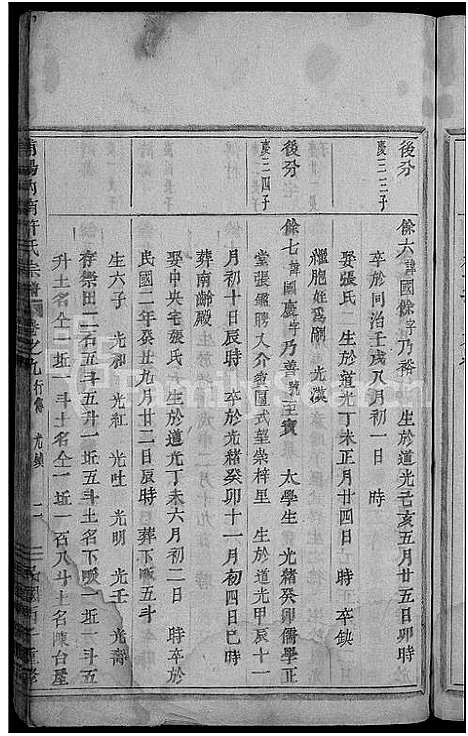 後分
慶三三子
餘六諱國餘字乃香 生於道光己亥五月廿五日卯時
卒於同治壬戌八月初一日 時
娶張氏 生於道光丁未正月廿四日 時 卒缺
繼胞姪為嗣 光漢
後分
慶三四子
餘七諱國慶字乃善號至寶 太學生 光緒癸卯儒學正
堂張鑑聘大介飲匾式堂崇梓里 生於道光甲辰十一
月初十日辰時 卒於光緒癸卯十一月初四日巳時
葬南齡殿
娶中央宅張氏 生於道光丁未六月初二日 時卒於
民國二年癸丑九月廿二日辰時 葬下畈五斗
生六子 光和 光紅 光吐 光明 光壬 光壽
存祭田二石五斗五升一坵五斗土名下畈一坵一斗五
升土名仝一坵一斗土名仝一坵一石八斗土名陳台屋
南陽 南許氏宗譜 卷之九行傳